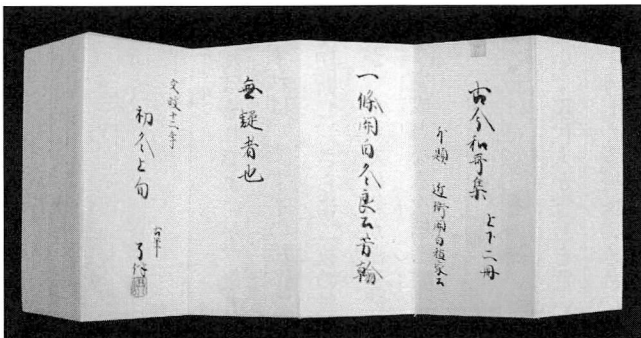 古今和哥集 上下二冊
外題 近衛関白稙家公
一條関白冬良公芳翰
無疑者也
文政十二年
初冬上旬
古筆 了伴